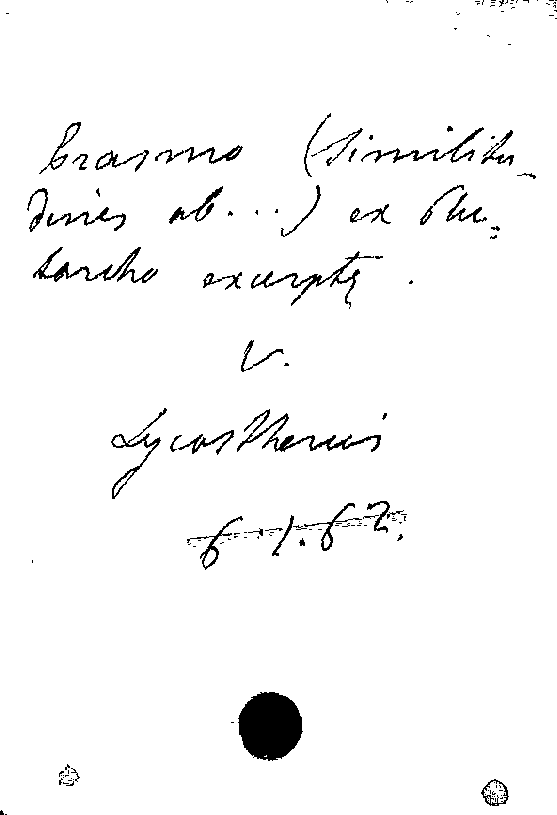 Erasmo (Similitu-
dines ab...) ex Plu-
tarcho excerptę.
V.
Lycosthenis
6.1.62.